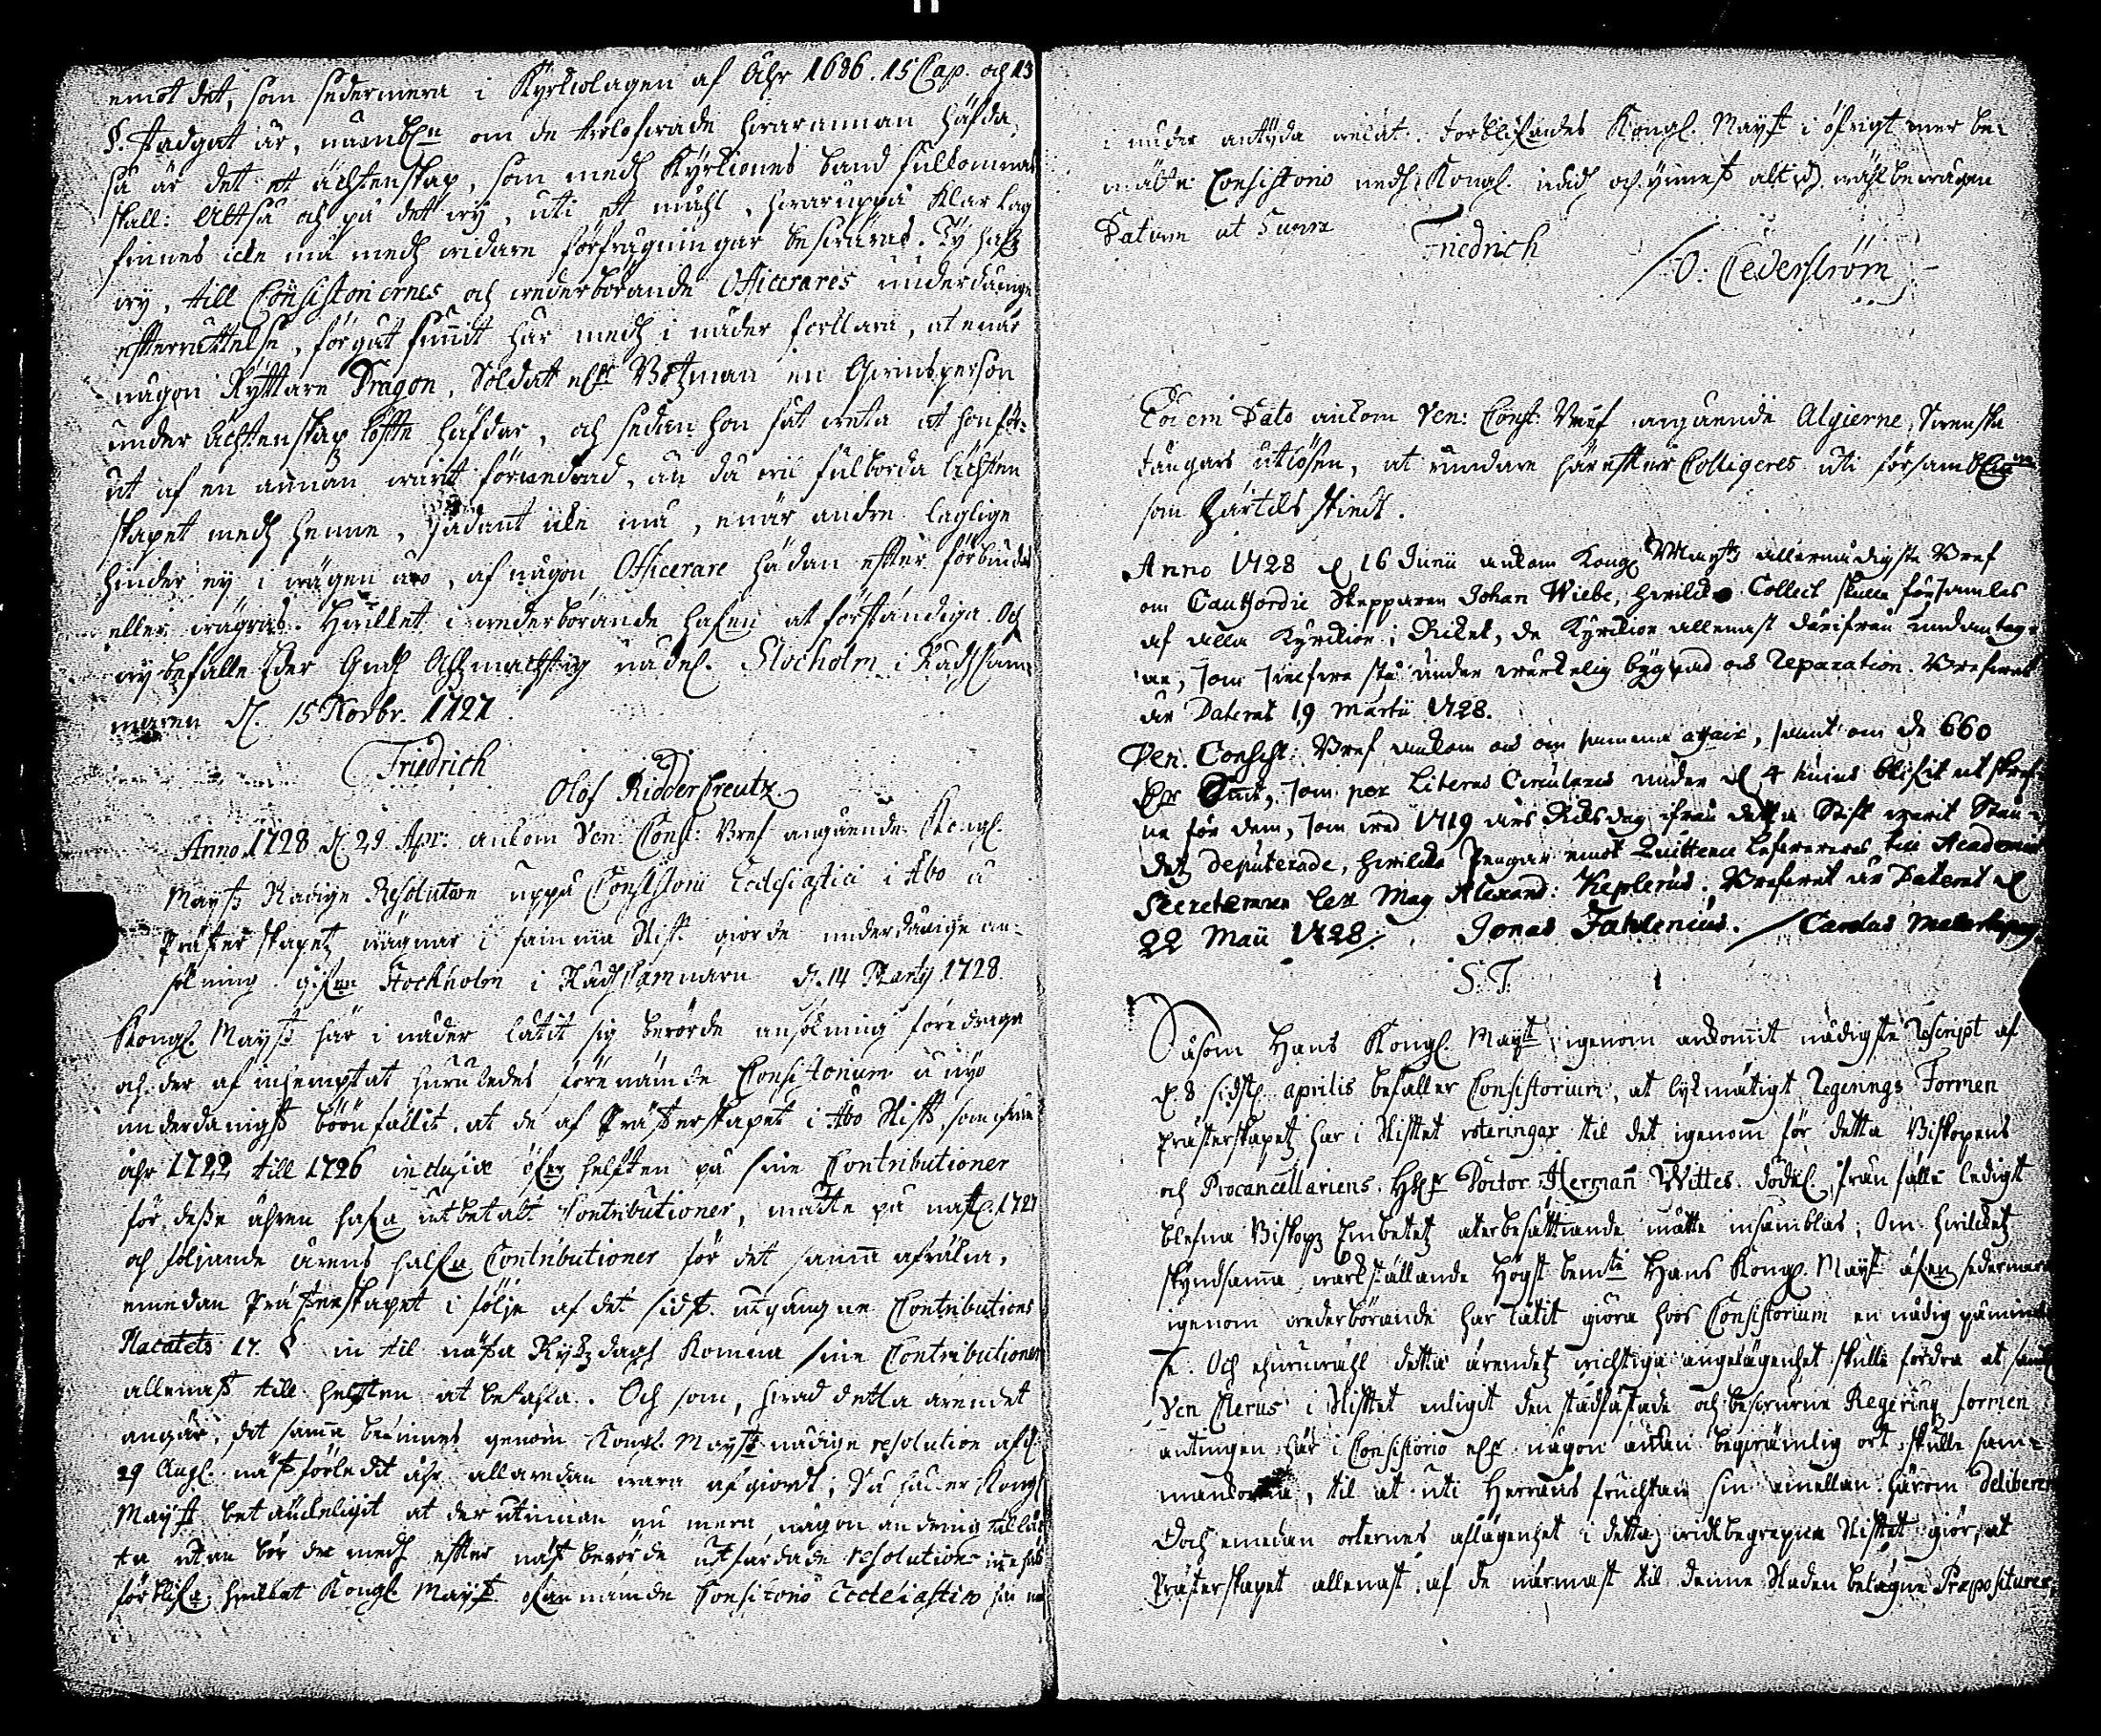 emot det, som sedermera i Kyrkiolagen af Åhr 1686. 15 Cap. och 13
§. stadgat är, nämbl:n om de trolofwade hwarannan häfda,
så är det et ächtenskap, som medh Kyrkiones band fullkomnas
skall: Altså och på dett wij, uti ett måhl, hwaruppå klar lag
finnes icke må medh widare förfrågningar beswäras. Ty hafe
wij, till Consistoriernes och wederbörande Officerares underdånige
efterrättelse, för gåt funnit här medh i nåder förklara, at enär
någon Ryttare Dragon, Soldat ell:r Båtzman en qwinsperson
under ächtenskaps löfte häfdar, och sedan hon fåt weta at hon för-
ut af en annan warit förkränkad, än då will fulborda ächten
skapet medh henne, sådant icke må, enär andre laglige
hinder ey i wägen äro, af någon Officerare hädan efter förbindas
eller wägras. Hwilket i wederbörande hafwen at förständiga. Och
wij befalle Eder Gudh Alzmächtig nådel. Stocholm i Rådhkam-
maren d. 15 Novbr. 1727
Friedrich
Olof RidderCreutz
Anno 1728 d. 29 Apr. ankom Ven: Consist: Bref angående Kongl.
Mayttz Nådige Resolution uppå Consistorii Ecclesiastici i Åbo å
Prästerskapetz wägnar i samma Stift giorde underdånige an-
sökning. gifwen Stockholm i Rådhkammaren d. 14 Martij 1728.
Kongl. Maytt har i nåder låtit sig berörde ansökning föredraga
och der af inhemptat huruledes förenämde Consistorium å nyo
underdånigst böönfallit, at de af Prästerskapet i Åbo Stift, som ifrån
åhr 1722 till 1726 inclusive öfwer helften på sine Contributioner
för desse åhren hafwa utbetalt Contributioner, måtte på nästl. 1727
och följande årens halfwa Contributioner för det samma afräkna,
emedan Prästerskapet i följe af det sidst. utgångne Contributions
Placatets 17. § in til nästa Rijkzdagh komma sine Contributioner
allenast till helften at betahla. Och som, hwad detta ärendet
angår, det samma befinnes genom Kongl. Mayttz nådige resolution af d.
29 Augl. näst förledit åhr allaredan wara afgiordt; Så håller Kongl.
Maytt betänckeligit at der utinnan nu mera någon ändring tillåt-
ta utan bör der medh efter näst berörde utfärdade resolutions innehåld
förblifwa, hwilket Kongl. Maytt ofwannämde Consistorio Ecclesiastico här med
i nåder antyda welat. Förblifwandes Kongl. Maytt i öfrigt mer be-
mälte Consistorio medh Kongl. nåd och ynnest altidh wähl bewågen
Datum ut Supra
Friedrich
/O: Cederström
Eodem Dato ankom Ven: Consist: Bref angående Algierne, Swenska
fångars utlösen, at medare härefter Colligeres uti församblingarne
som härtils skiedt.
Anno 1728 d 16 Junii ankom Kongl Mayttz allernådigste Bref
om Cautfordie Skepparen Johan Wiebe, hwilckes Collect skulle församles
af alla Kyrckior i Riket, de Kyrckior allenast därifrån undantag-
ne, som sielfwe stå under wärkelig bygnad och Reparation. Brefwet
är Daterat 19 Martii 1728.
Ven. Consist: Bref ankom ock om samma affair, samt om de 660
Dr Smt, som per Literas Circulares under d 4 hujus blifwit utskref-
ne för dem, som wid 1719 åhrs Riksdag ifrån detta Stift warit Stån-
detz deputerade, hwilcka Pengar emot Quittence lefwereres till Academiae
Secreteraren Herr Mag Alexand: Keplerus. Brefwet är Daterat d
22 Maii 1728. Jonas Fahlenius. / Carolus Mesterton
S: T:
Såsom Hans Kongl. Maytt igenom ankommit nådigste Rescript af
d 8 sidstl. aprilis befaller Consistorium, at lijkmätigt Regerings Formen
Prästerskapetz här i Stiftet voteringar til det igenom för detta Biskopens
och Procancellariens Hl:r Doctor Hermañ Wittes dödel. frånfälle ledigt
blefne Biskops Embetetz återbesättiande måtte insamblas; Om hwilcketz
skyndsamma wärkställande Högst bem:te Hans Kongl. Maytt äfwen sedermera
igenom wederbörande har låtit giöra hoos Consistorium en nådig påminnel-
se. Och ehuruwähl detta ärendetz wichtiga angelägenhet skulle fordra at samtl.
Ven Clerus i Stiftet enligit den stadfästade och beswurne Regerings formen
antingen här i Consistorio ell:r någon annan beqwämlig ort, skulle sam-
mankomma, til at uti Herrans fruchtan sin emellan härom deliberera
Doch emedan orternes aflägenhet i detta widtbegrepna Stiftet giör, at
Prästerskapet allenast, af de närmast til denne Staden belägne Præposituren